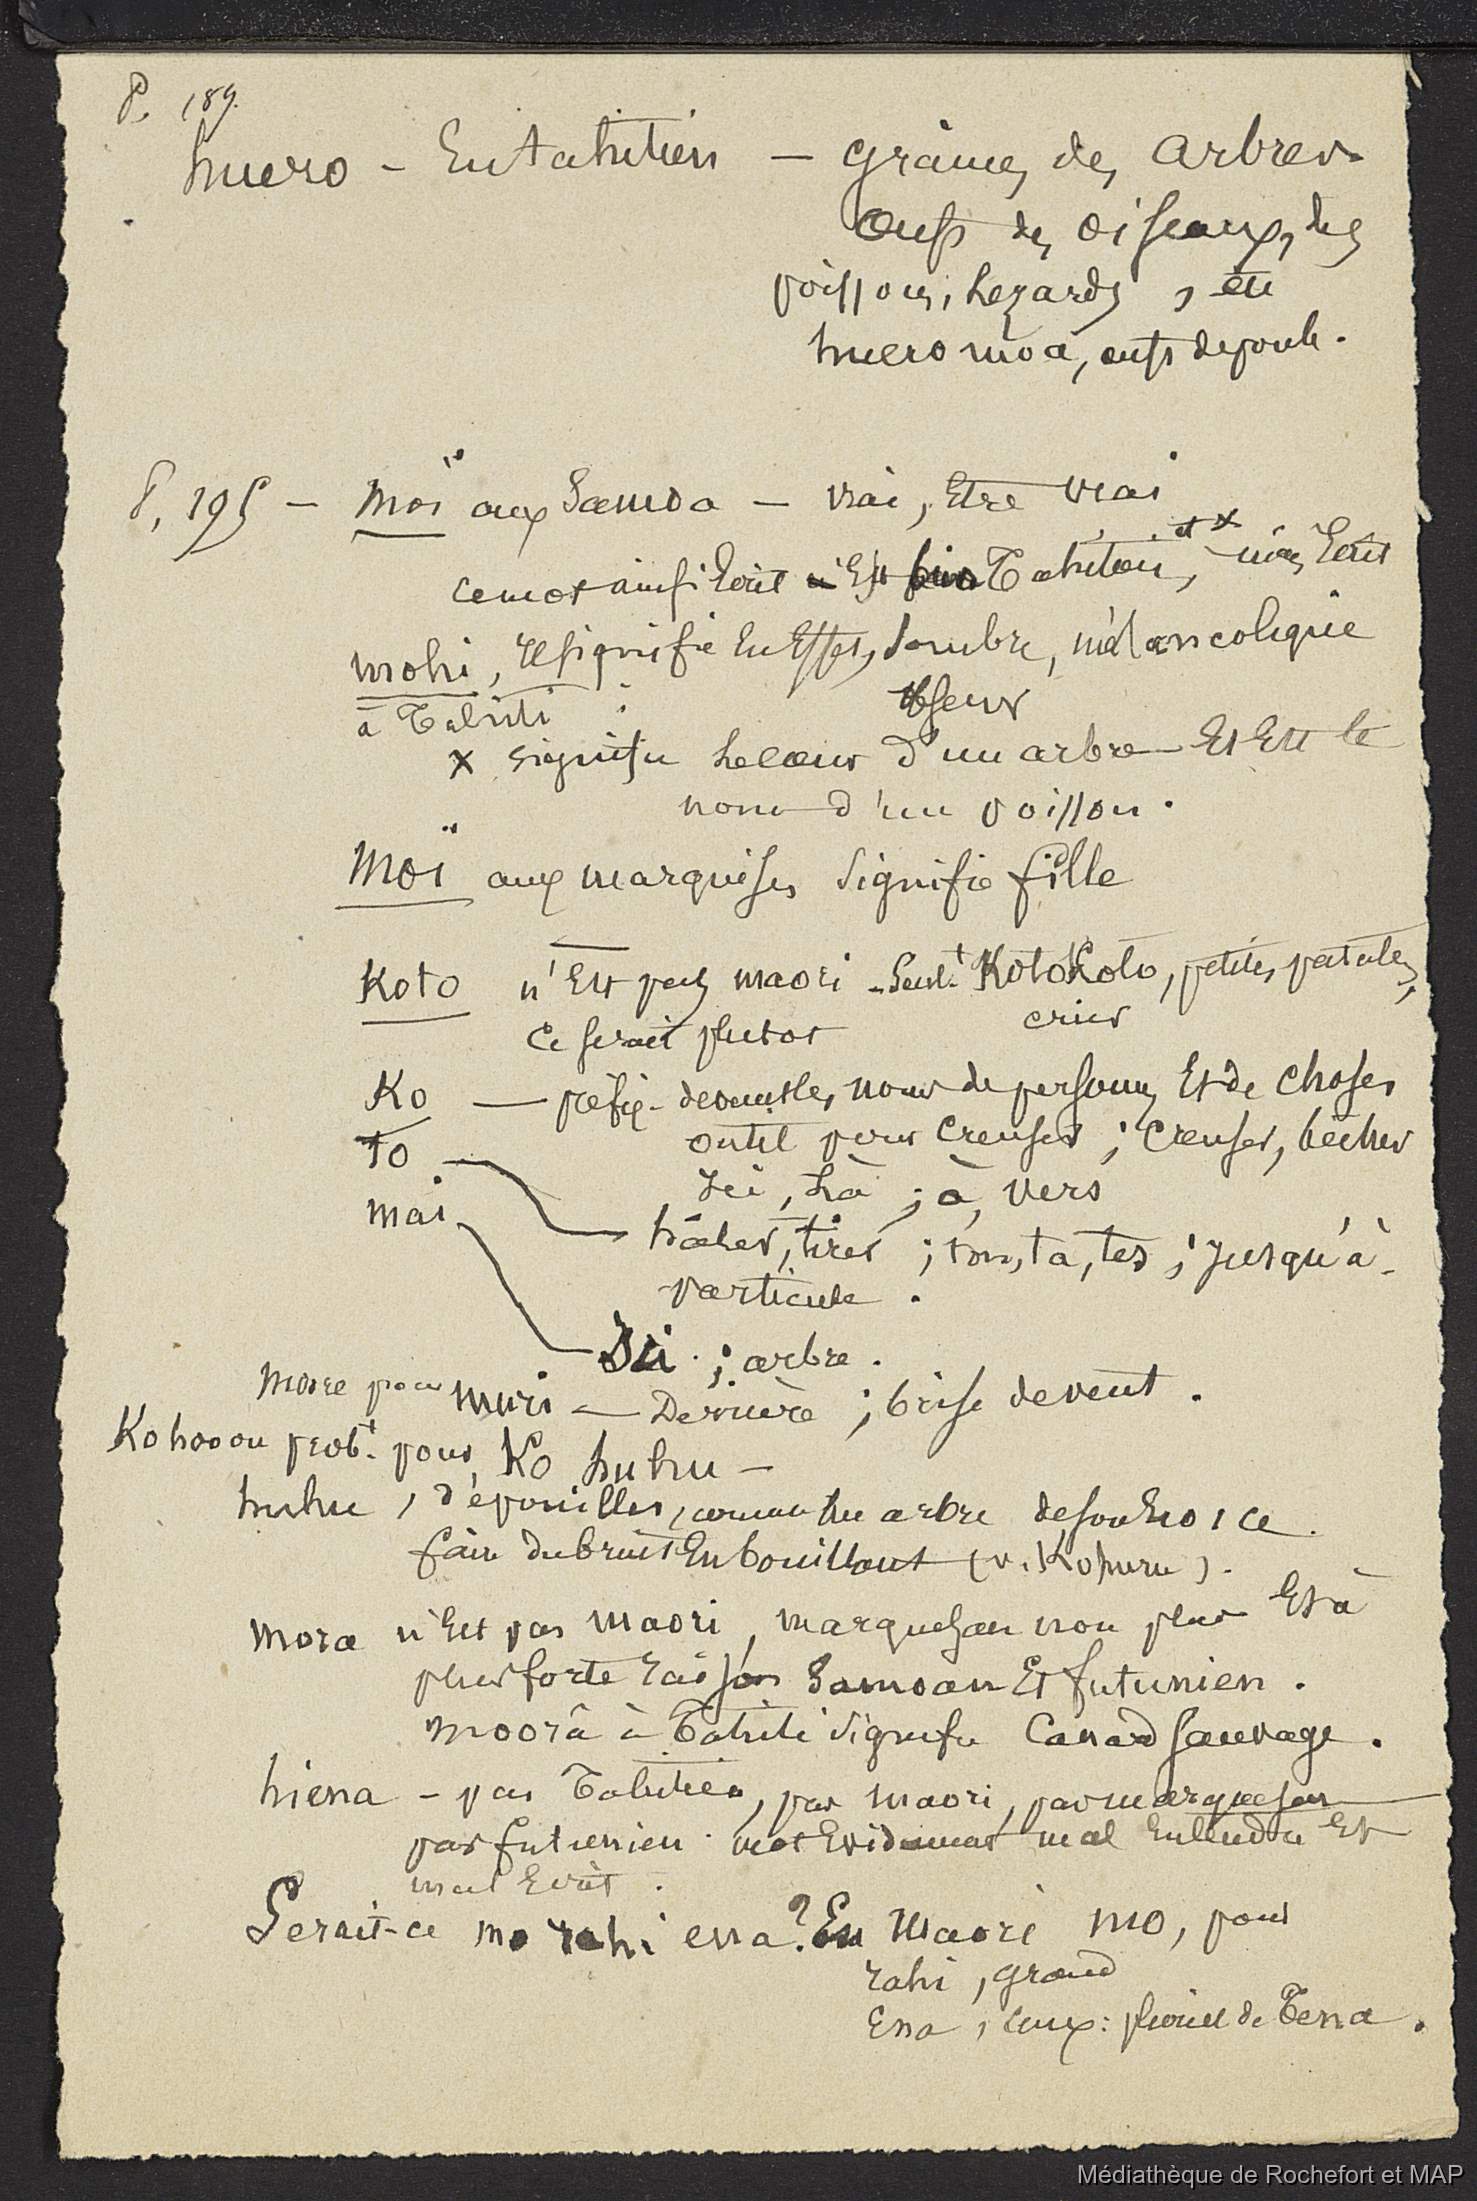 P. 189.
huero - En tahitien - graines des arbres
Oeufs des oiseaux, des
poissons, lezards, etc
huero moa, oeufs de poule.
P. 195 - Moï aux Samoa - vrai, Etre vrai
ce mot ainsi Ecrit Est Tahitien, et x mais Ecrit
mohi, et signifie En Effet, Sombre, mélancolique
à Tahiti : obscur
x signifie le cœur d'un arbre Et Est le
nom d'un poisson.
Moï aux marquises signifie fille
Koto n'Est pas maori - Seult KotoKoto, petites patates,
Ce serait plutot crier
Ko — préfix. devant les noms de personnes Et de choses
outil pour Creuser ; Creuser, bêcher
Ici, Là ; à, vers
To
mai
hâler, tirer ; ton, ta, tes ; jusqu'à -
particule .
Ici . ; arbre .
More pour muri — Derrière ; brise de vent .
Kohooou probt. pour Ko huhu —
huhu , dépouiller, comme un arbre de son Ecorce .
faire du bruit En bouillant (v. Kohuru ) .
Mora n'Est pas maori, marquesan non plus Et à
plus forte raison Samoan Et futunien .
moorâ à Tahiti signifie Canard sauvage .
hiena - pas Tahitien, pas maori, pas marquesan
pas futunien . mot Evidemment mal Entendu Et
mal Ecrit .
Serait-ce mo rahi ena ? En Maori mo, pour
rahi, grand
Ena , ceux : pluriel de Tena .
Médiathèque de Rochefort et MAP